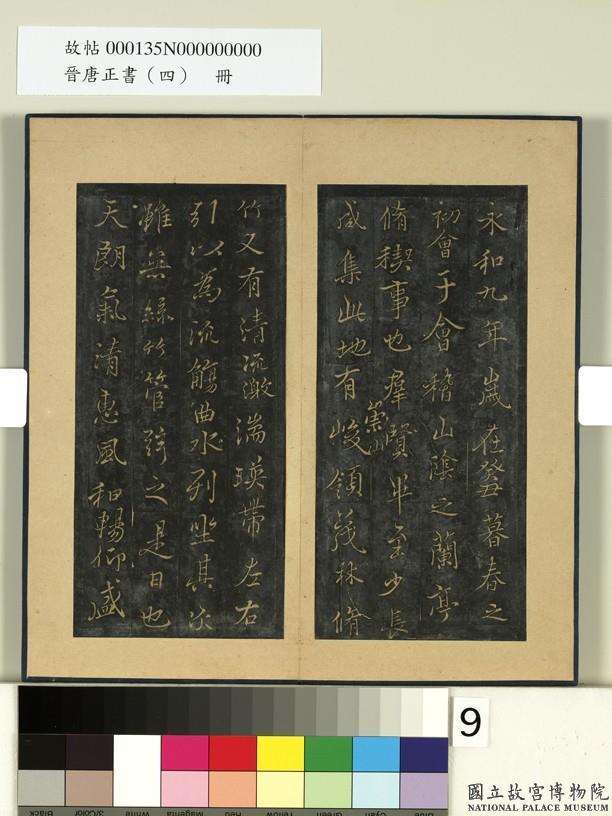 故帖 000135N000000000
晉唐正書（四） 冊
永和九年歲在癸丑暮春之
初會于會稽山陰之蘭亭
脩稧事也羣賢畢至少長
咸集此地有崇山峻領茂林脩
竹又有清流激湍暎帶左右
引以為流觴曲水列坐其次
雖無絲竹管弦之
是日也
天朗氣清惠風和暢仰
盛
9
國立故宮博物院
NATIONAL PALACE MUSEUM
Black
3/Color
White
Magenta
Red
Yellow
Green
Cyan
Blue